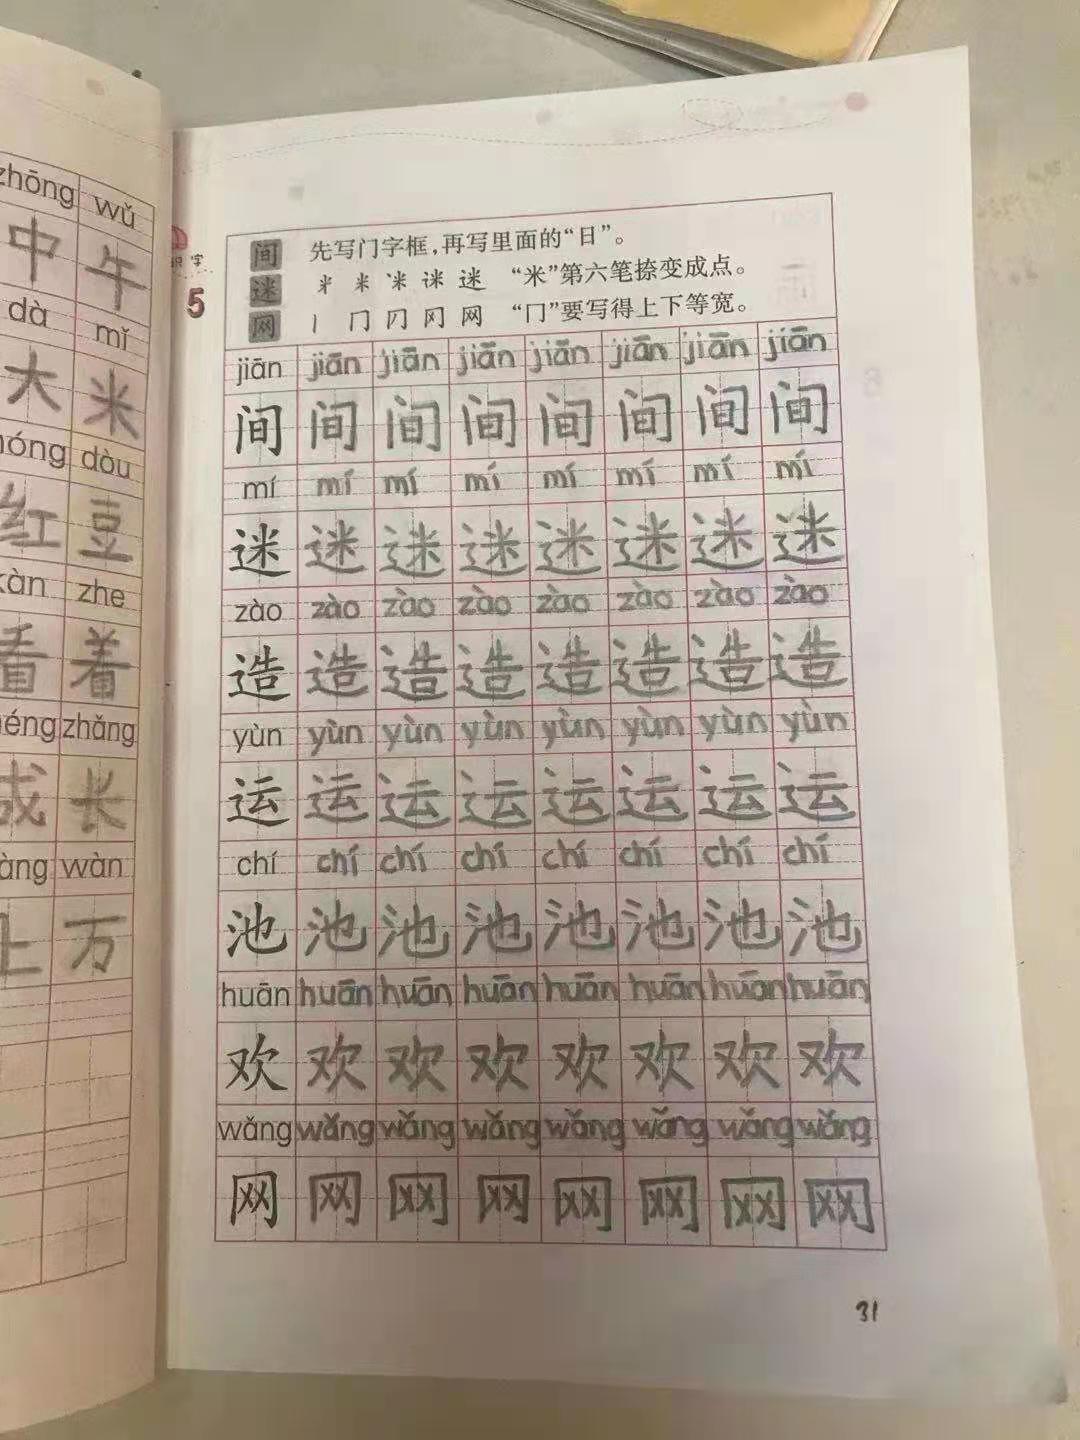 zhōng wǔ
中 午
dà mǐ
大 米
hóng dòu
红 豆
kàn zhe
看 着
zhǎng
成 长
wàn
上 万
识 字
5
间 先写门字框，再写里面的“日”。
迷 “米”第六笔捺变成点。
网 丨 冂 “冂”要写得上下等宽。
jiān jiān jiān jiān jiān jiān jiān jiān
间 间 间 间 间 间 间 间
mí mí mí mí mí mí mí mí
迷 迷 迷 迷 迷 迷 迷 迷
zào zào zào zào zào zào zào zào
造 造 造 造 造 造 造 造
yùn yùn yùn yùn yùn yùn yùn yùn
运 运 运 运 运 运 运 运
chí chí chí chí chí chí chí chí
池 池 池 池 池 池 池 池
huān huān huān huān huān huān huān huān
欢 欢 欢 欢 欢 欢 欢 欢
wǎng wǎng wǎng wǎng wǎng wǎng wǎng wǎng
网 网 网 网 网 网 网 网
31